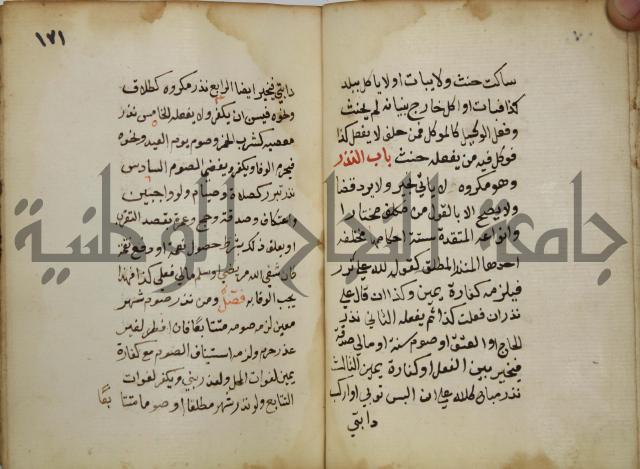 ساكت حنث ولا يبات او لا ياكل ببلد
كذا فبات او اكل خارج بنيانه لم يحنث
وفعل الوكيل كالموكل فمن حلف لا يفعل كذا
فوكل فيه من يفعله حنث باب النذر
وهو مكروه لا ياتي بخير ولا يرد قضا
ولا يصح الا بالقول من مكلف مختار
وانواعه المنعقدة ستة احكامها مختلفة
احدها النذر المطلق كقوله لله علي نذر
فيلزمه كفارة يمين وكذا ان قال علي
نذر ان فعلت كذا ثم يفعله الثاني نذر
لجاج او العتق او صوم سنة او مالي صدقة
فيخير بين الفعل او كفارة يمين الثالث
نذر مباح كلله علي ان البس ثوبي او اركب
دابتي
١٢١
دابتي فيخير ايضا الرابع نذر مكروه كطلاق
ونحوه فيسن ان يكفر ولا يفعله الخامس نذر
معصية كشرب الخمر وصوم يوم العيد ونحوه
فيحرم الوفا ويكفر ويقضي الصوم السادس
نذر تبرر كصلاة وصيام ولو واجبين
واعتكاف وصدقة وحج وعمرة بقصد التقرب
او يعلق ذلك بشرط حصول نعمة او دفع نقمة
كان شفي الله مريضي او سلم مالي فعلي كذا فهذا
يجب الوفا به فصل ومن نذر صوم شهر
معين لزمه صومه متتابعا فان افطر لغير
عذر حرم ولزمه استيناف الصوم مع كفارة
يمين لفوات المحل ولعذر يبني ويكفر لفوات
التتابع ولو نذر شهر مطلقا او صوما متتابعا
جامعة النجاح الوطنية